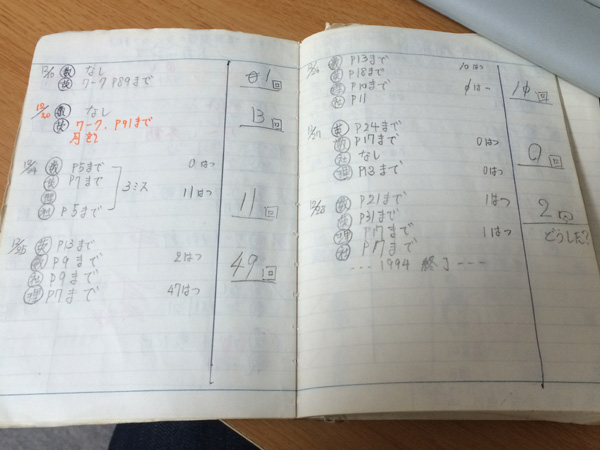 12/10 数 なし
英 ワークP89まで
1回
12/20 数 なし
英 ワーク、P91まで
13回
12/24 数 P5まで 0はつ
英 P7まで
理
社 P5まで
3ミス 11はつ
11回
12/25 英 P13まで
数 P9まで 2はつ
社 P9まで
理 P7まで 47はつ
49回
12/26 数 P13まで 10はつ
英 P18まで
理 P10まで
社 P11
10回
12/27 英 P24まで
数 P17まで 0はつ
社 なし
理 P13まで 0はつ
0回
12/28 数 P21まで 1はつ
英 P31まで
理 P17まで 1はつ
社 P17まで
2回
どうした?
--- 1994 終了 ---